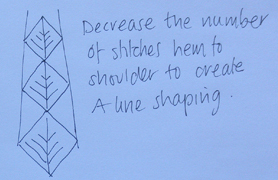 Decrease the number
of stitches hem to
shoulder to create
A line shaping.